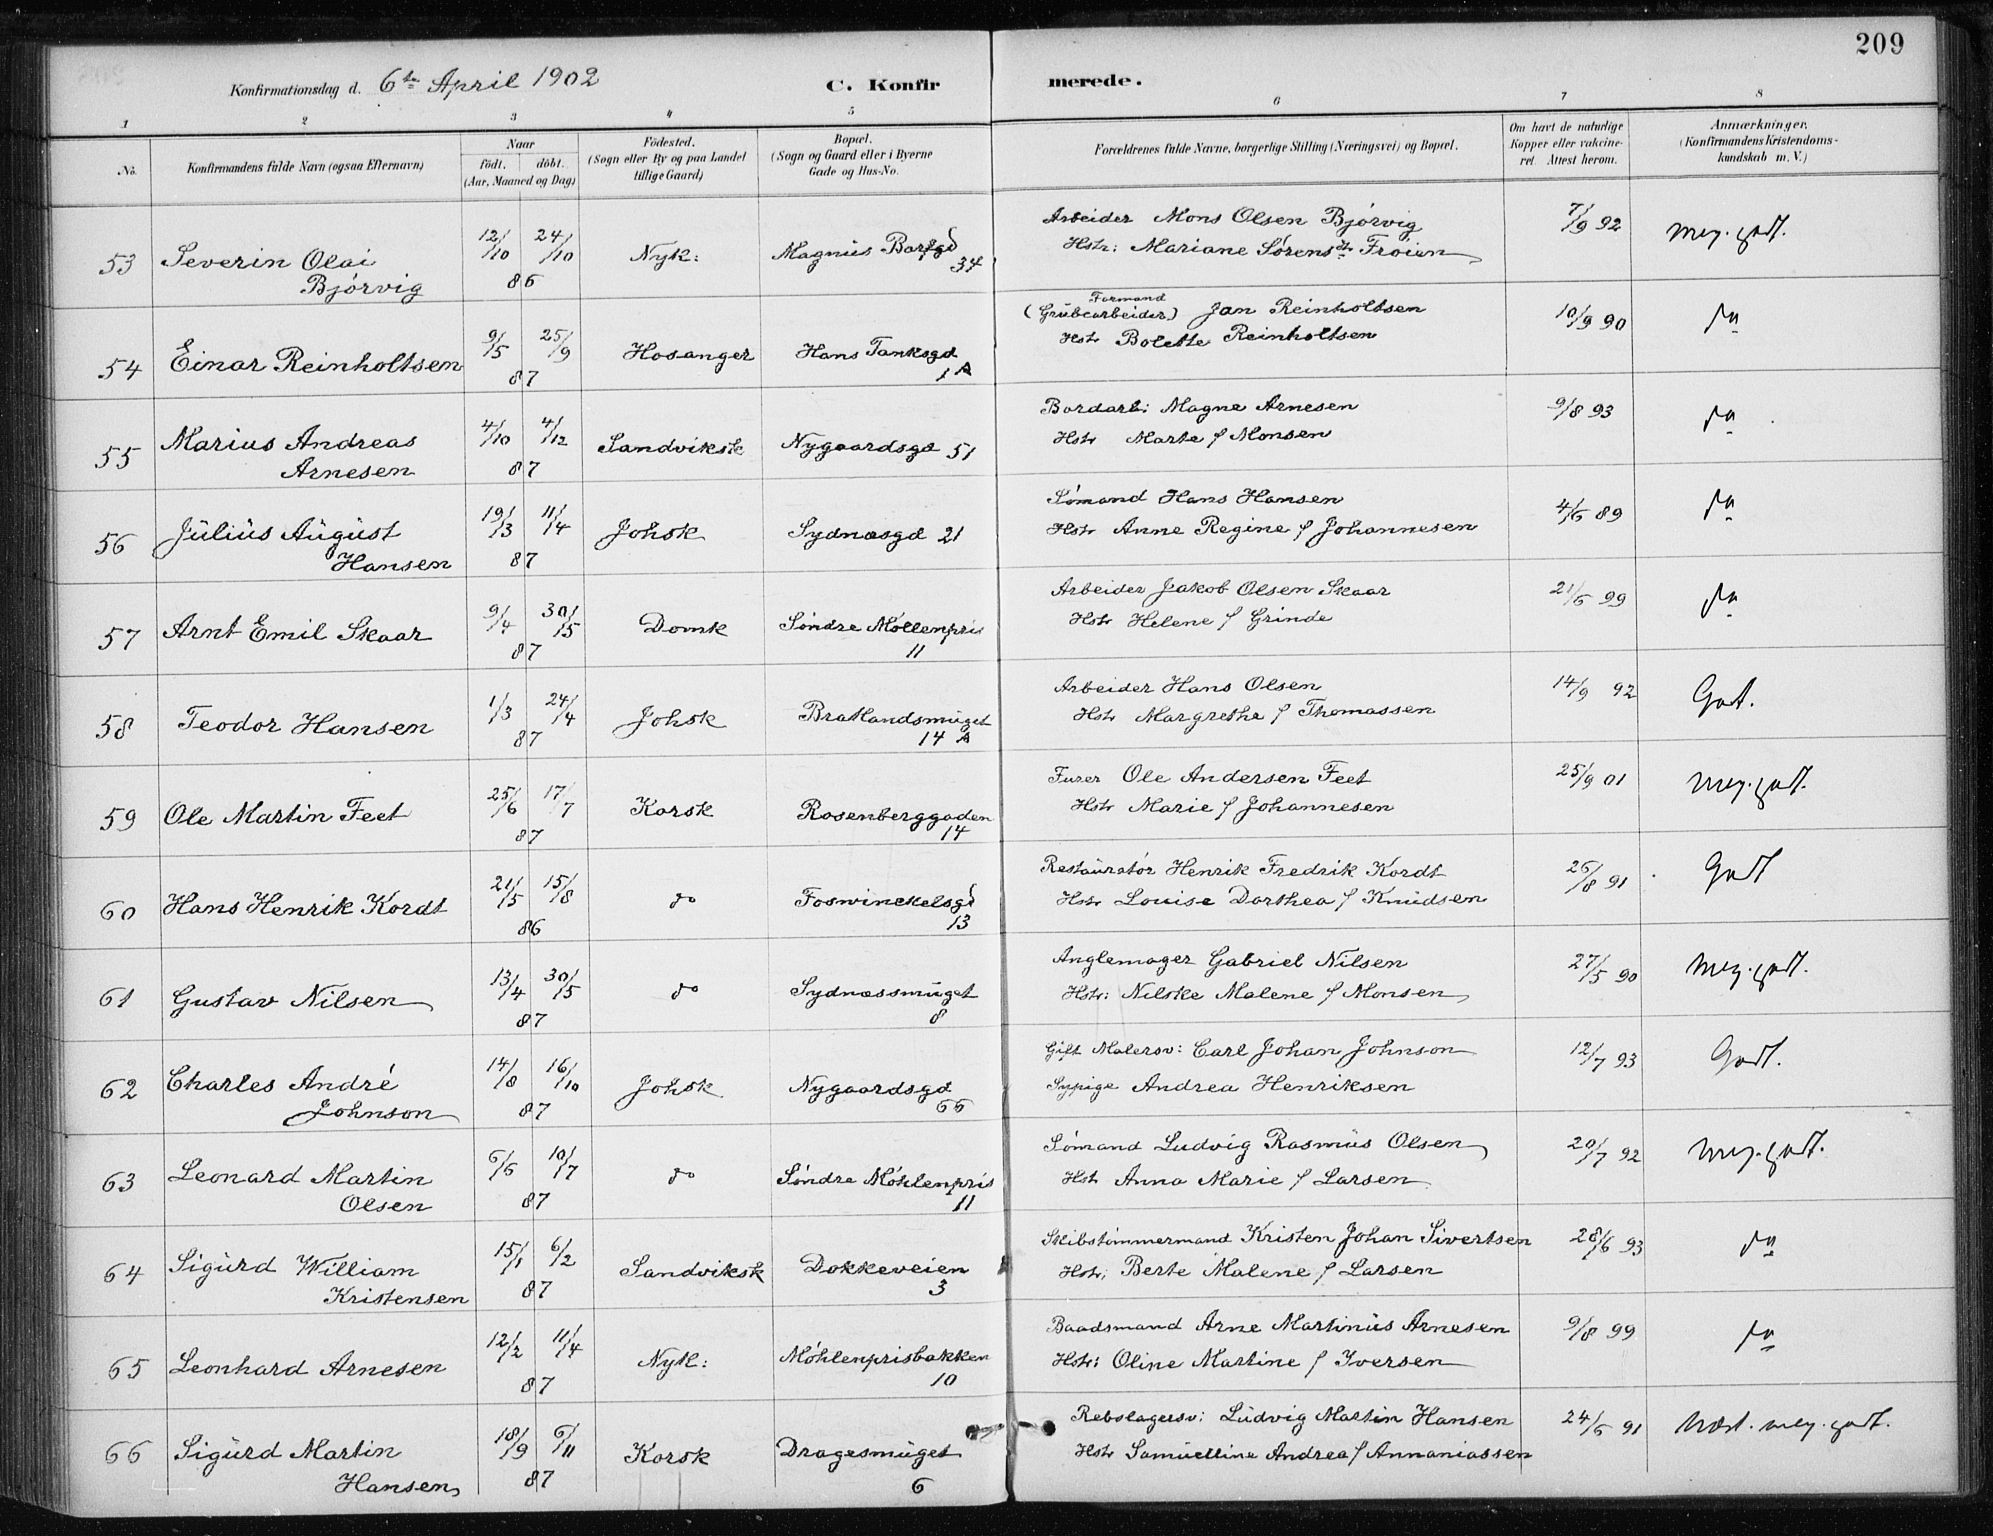 209
Konfirmationsdag d. 6te April 1902
C. Konfirmerede.
1 2 3 4 5 6 7 8
No.
Konfirmandens fulde Navn (ogsaa Efternavn)
Naar
födt. döbt.
(Aar, Maaned og Dag)
Födested.
(Sogn eller By og paa Landet
tillige Gaard)
Bopæl.
(Sogn og Gaard eller i Byerne
Gade og Hus-No.
Forældrenes fulde Navne, borgerlige Stilling (Næringsvei) og Bopæl.
Om havt de naturlige
Kopper eller vakcine-
ret. Attest herom.
Anmærkninger.
(Konfirmandens Kristendoms-
kundskab m. V.)
53 Severin Olai 12/10 24/10 Nyk: Magnus Barfgd Arbeider Mons Olsen Bjórvig 7/9 92 meg. godt.
Bjórvig 86 34 Hstr: Mariane Sørensdtr Frøien
54 Einar Reinholtsen 9/5 25/9 Hosanger Hans Tanksgd (Grubearbeider) Formand Jan Reinholtsen 10/9 90 do
87 1 A Hstr Bolette Reinholtsen
55 Marius Andreas 4/10 4/12 Sandviksk Nygaardsgd 51 Bordarb: Magne Arnesen 9/8 93 do
Arnesen 87 Hstr Marte f Monsen
56 Julius August 19/3 11/4 Johsk Sydnæsgd 21 Sómand Hans Hansen 4/6 89 do
Hansen 87 Hstr Anne Regine f Johannesen
57 Arnt Emil Skaar 9/4 30/5 Domk Søndre Møllenpris Arbeider Jakob Olsen Skaar 21/6 99 do
87 11 Hstr Helene f Grinde
58 Teodor Hansen 1/3 24/4 Johsk Bratlandsmuget Arbeider Hans Olsen 14/9 92 Godt.
87 14 A Hstr Margrethe f Thomassen
59 Ole Martin Feet 25/6 17/7 Korsk Rosenberggaden Furer Ole Andersen Feet 25/9 01 meg. godt.
87 14 Hstr Marie f Johannesen
60 Hans Henrik Kordt 21/5 15/8 do Foswinckelsgd Restauratør Henrik Fredrik Kordt 26/8 91 Godt
86 13 Hstr Louise Dorthea f Knudsen
61 Gustav Nilsen 13/4 30/5 do Sydnæssmuget Anglemager Gabriel Nilsen 27/5 90 Meg. godt.
87 8 Hstr: Nilske Malene f Monsen
62 Charles André 14/8 16/10 Johsk Nygaardsgd Gift Malersv: Carl Johan Johnson 12/7 93 Godt.
Johnson 87 66 Sypige Andrea Henriksen
63 Leonard Martin 6/6 10/7 do Søndre Móhlenpris Sómand Ludvig Rasmus Olsen 20/7 92 meg. godt.
Olsen 87 11 Hstr Anna Marie f Larsen
64 Sigurd William 15/1 6/2 Sandviksk Dokkeveien Skibstømmermand Kristen Johan Sivertsen 28/6 93 do
Kristensen 87 3 Hstr: Berte Malene f Larsen
65 Leonhard Arnesen 12/2 11/4 Nyk: Móhlenprisbakken Baadsmand Arne Martinus Arnesen 9/8 99 do
87 10 Hstr: Oline Martine f Iversen
66 Sigurd Martin 18/9 6/11 Korsk Dragesmuget Rebslagersv: Ludvig Martin Hansen 24/6 91 Næst. meg. godt.
Hansen 87 6 Hstr Samuelline Andrea f Annaniassen